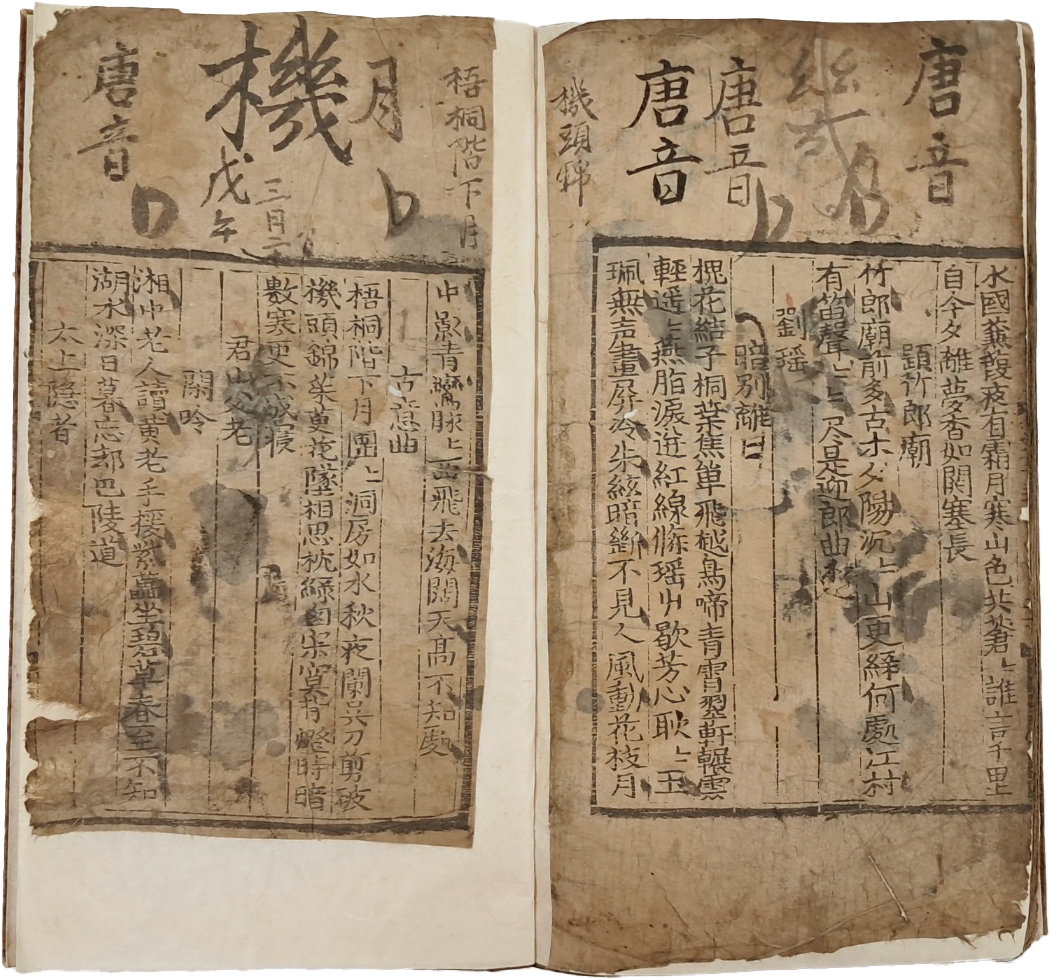 唐音
唐音
唐音
機頭錦
水國蒹葭夜有霜月寒山色共蒼〻誰言千里
自今夕離夢杳如関塞長
題竹郎廟
竹郎廟前多古木夕陽沉〻山更綠何處江村
有笛聲〻〻尽是迎郎曲
劉瑶
暗別離
槐花結子桐葉焦單飛越鳥啼青霄翠軒輾雲
輕遥〻燕脂淚迸紅線條瑶艸歇芳心耿〻玉
珮無声畫屏冷朱絃暗斷不見人風動花枝月
梧桐階下月
月
機
戊午
三月二
唐音
中影青鸞脉〻西飛去海闊天高不知處
古意曲
梧桐階下月團〻洞房如水秋夜闌吳刀剪破
機頭錦茱萸花墜相思枕綠窗寂寞背燈時暗
數寒更不成寢
君山父老
閑吟
湘中老人讀黃老手援紫藟坐碧草春至不知
湖水深日暮忘却巴陵道
太上隱者